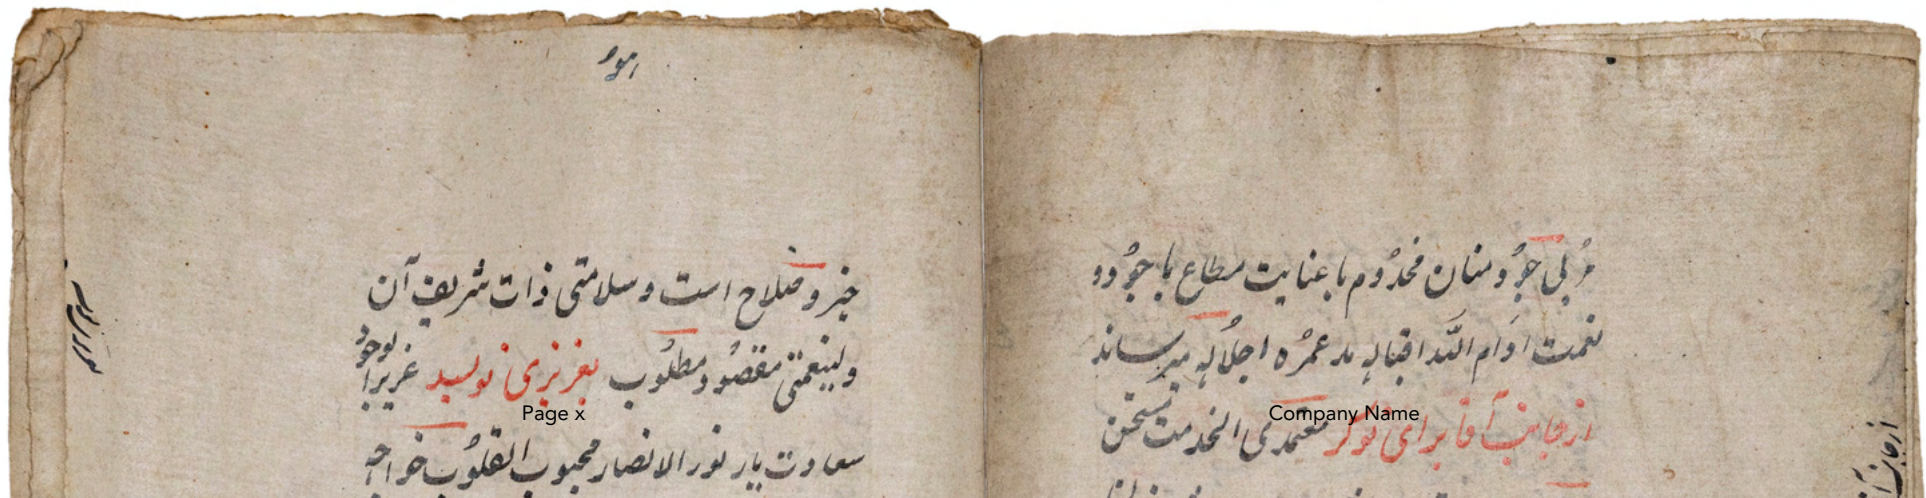 مربی جود و منان مخدوم با عنایت مطاع با جود و
نعمت ادام الله اقباله مد عمره اجلاله میرساند
از جانب آقا برای نوکر معتمدی الخدمت
Company Name
از جانب آ
خیر و صلاح است و سلامتی ذات شریف آن
ولینعمتی مقصود و مطلوب بعزیزی نویسد عزیز
سعادت یار نور الانصار محبوب القلوب خواجه
Page x